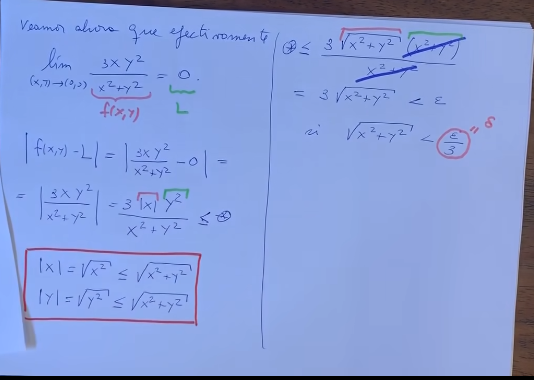 Veamos ahora que efectivamente
lim (x,y)→(0,0) 3xy²/(x²+y²) = 0.
f(x,y) L
|f(x,y) - L| = |3xy²/(x²+y²) - 0| =
= |3xy²/(x²+y²)| = 3|x|y²/(x²+y²) ≤ ⊛
|x| = √x² ≤ √(x²+y²)
|y| = √y² ≤ √(x²+y²)
⊛ ≤ 3√(x²+y²) (x²+y²)/(x²+y²)
= 3√(x²+y²) < ε
si √(x²+y²) < ε/3 = δ